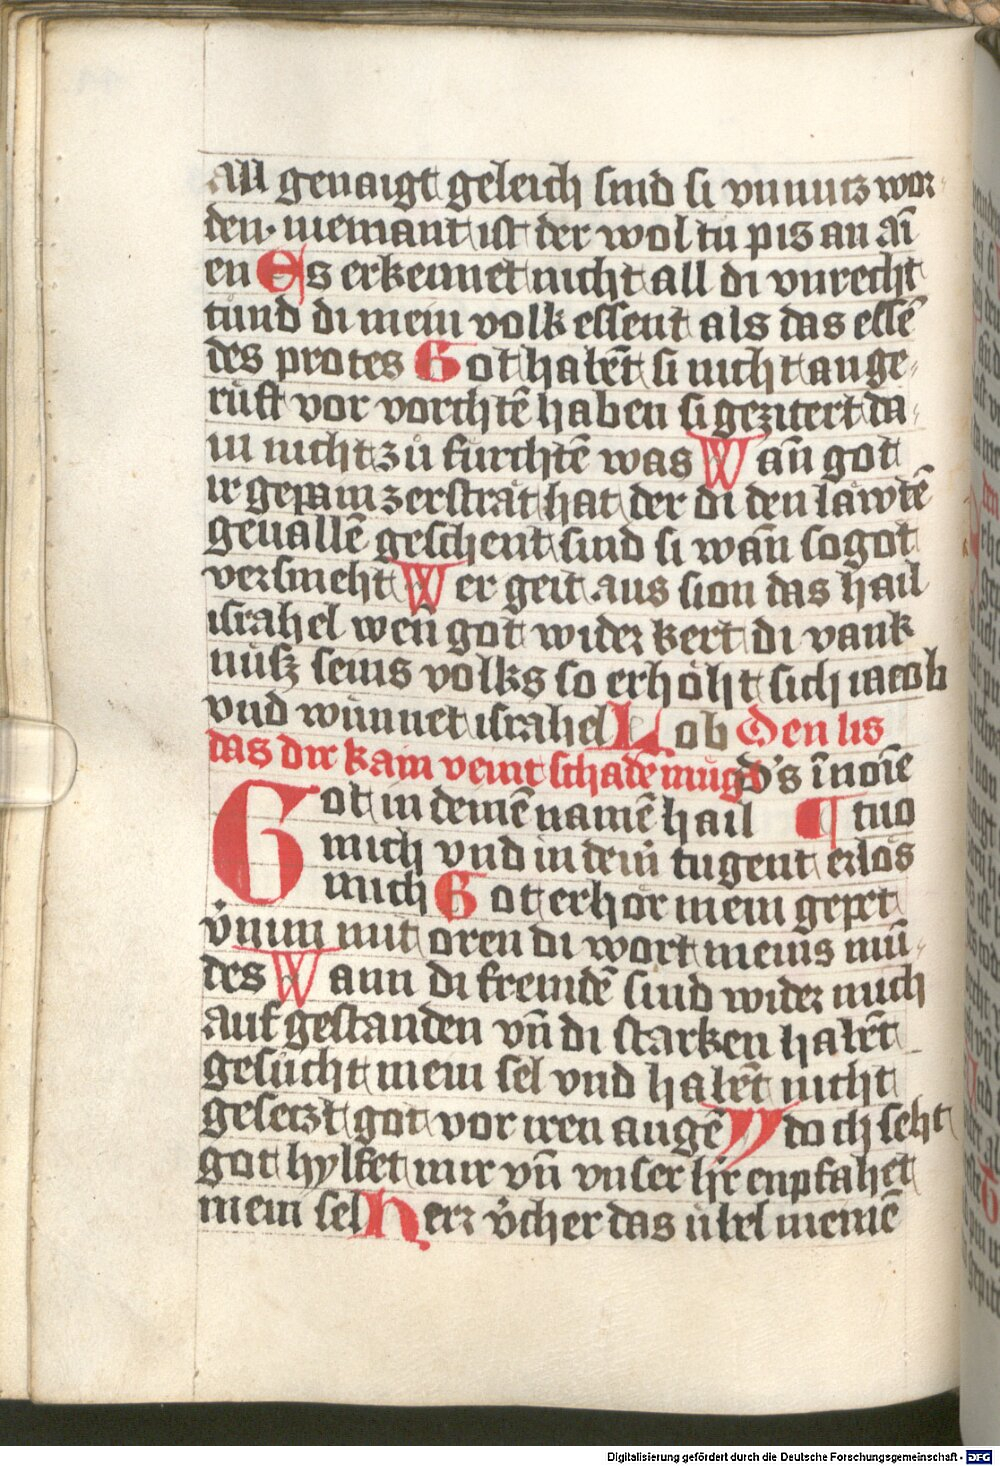 All genaigt geleich sind si vnnutz wor-
den. niemant ist der wol tu pis an ai͂
en Es erkennet nicht all di vnrecht
tůnd di mein volk essent als das essē
des protes Got habēt si nicht ange-
růft vor vorchtē haben si gezitert da-
in nicht zů fürchtē was Wan̄ got
ir gepain zerströt hat der di den läwtē
geuallē geschent sind si wan̄ so got
versmeht Wer geit aus sion das hail
israhel wen̄ got wider kert di vank
nüsz seins volks so erhöht sich iacob
vnd wünnet israhel Lob Den lis
das dir kain veint schadē müg D's ī noīe
Got in deinē namē hail ¶ tuo
mich vnd in dein̄ tugent erlös
mich Got erhör mein gepet
v̊nim mit oren di wort meins mū-
des Wann di fremdē sind wider mich
auf gestanden vn̄ di starken habēt
gesücht mein sel vnd habēt nicht
gesetzt got vor iren augē Doch seht
got hylfet mir vn̄ vnser h̄r enpfahet
mein sel Herr v̊cher das übel meinē
Digitalisierung gefördert durch die Deutsche Forschungsgemeinschaft - DFG